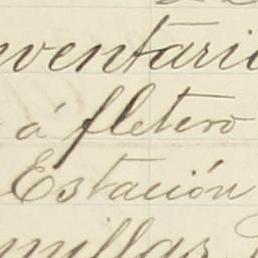 nventario
á fletero
Estación
millas